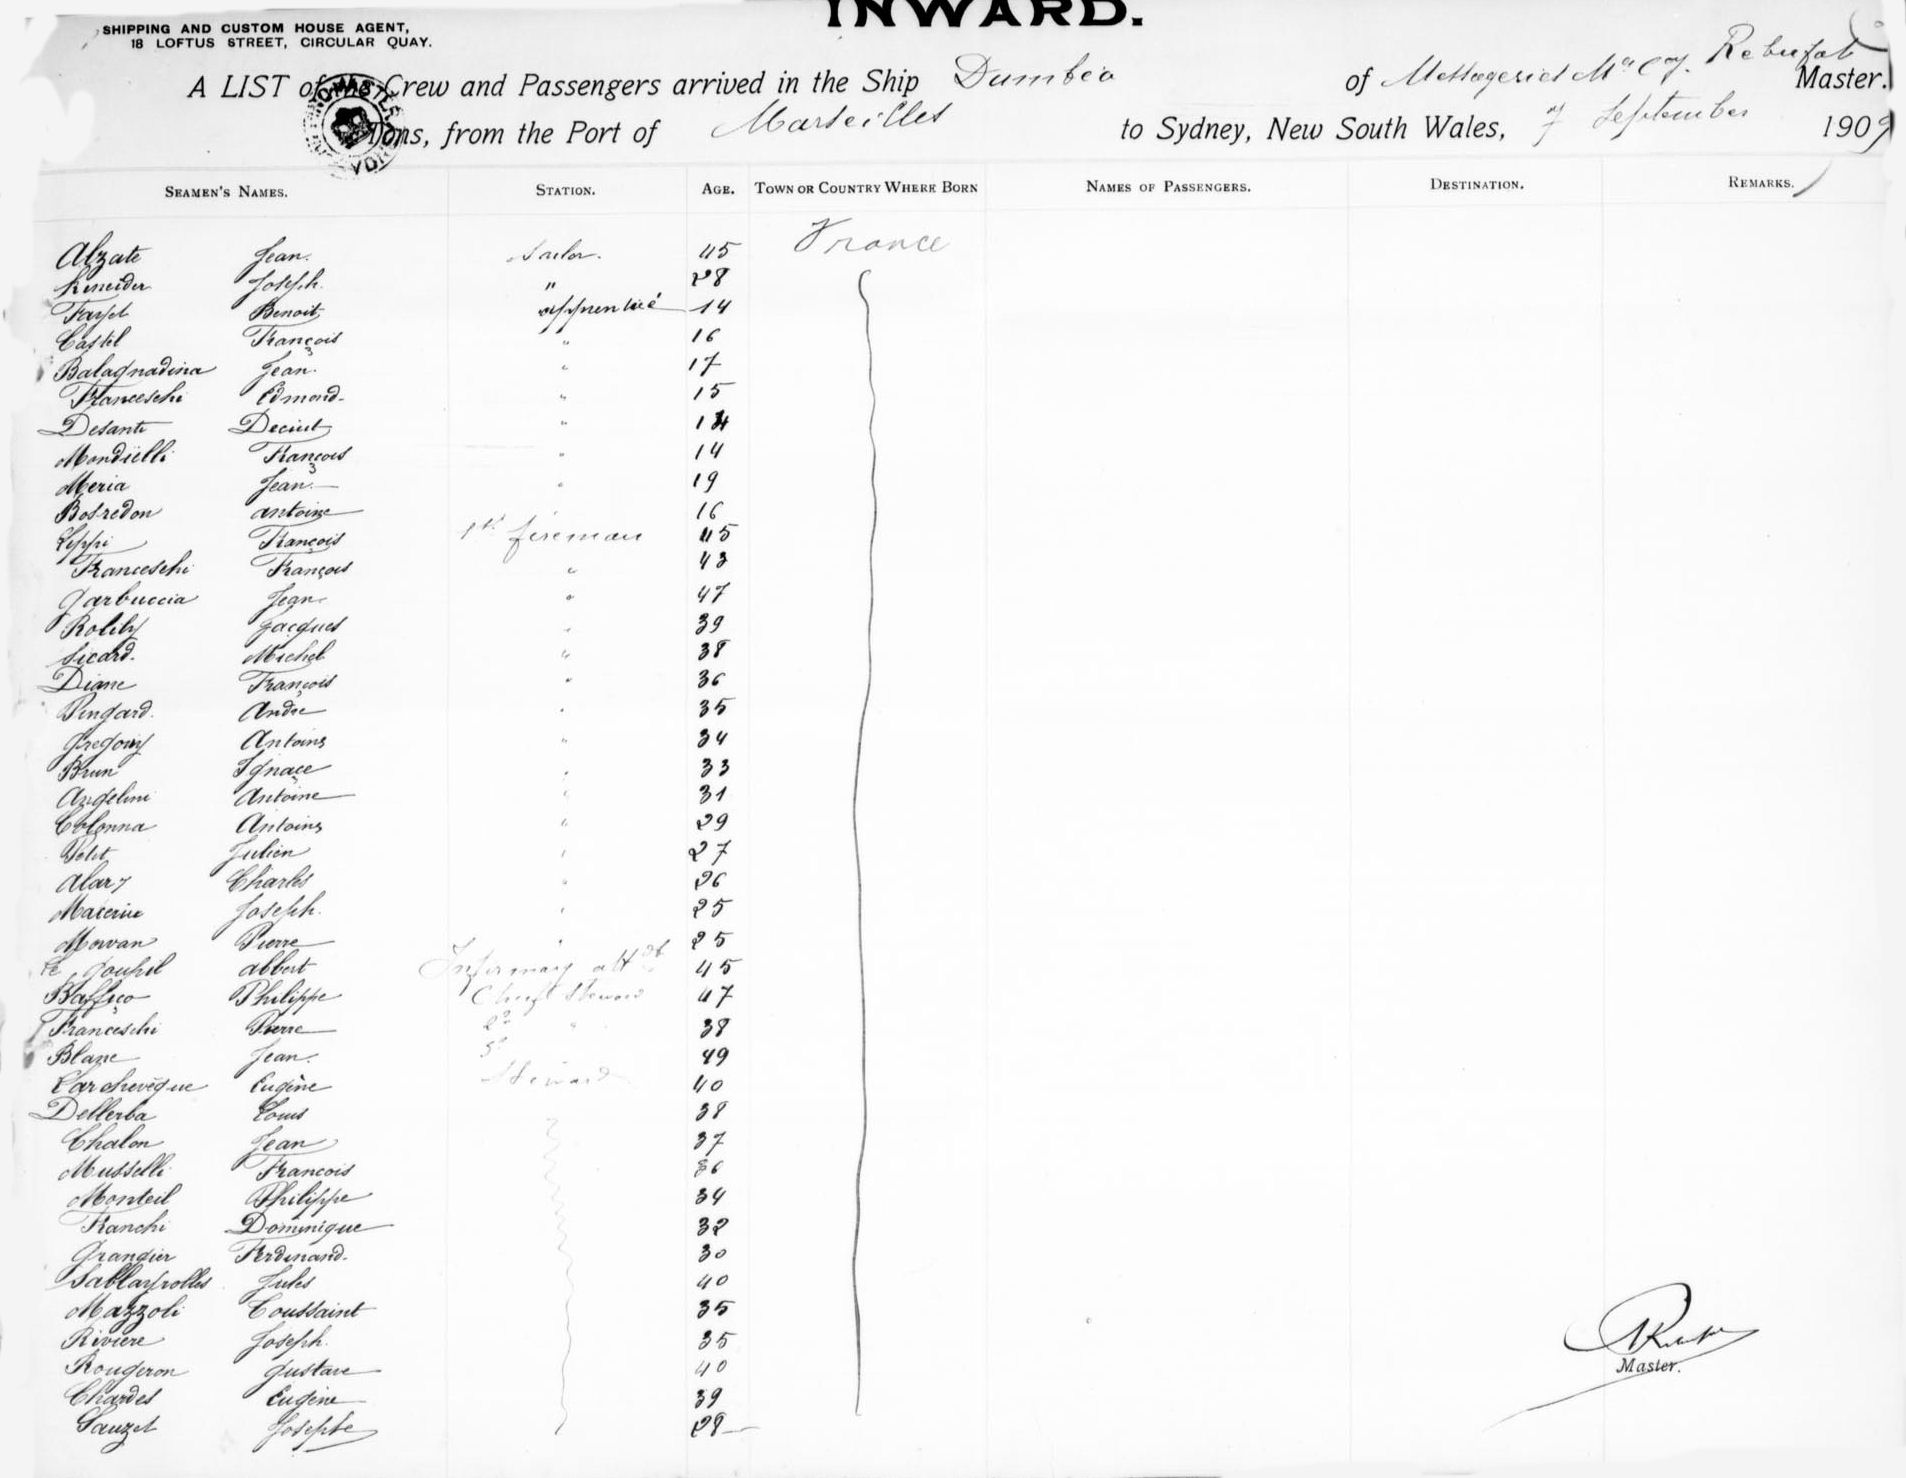 INWARD.
SHIPPING AND CUSTOM HOUSE AGENT,
18 LOFTUS STREET, CIRCULAR QUAY.
A LIST of the Crew and Passengers arrived in the Ship Dumbea of Messageries Mar Coy. Rebufat Master.
Tons, from the Port of Marseilles to Sydney, New South Wales, 7 September 1909
SEAMEN'S NAMES. STATION. AGE. TOWN OR COUNTRY WHERE BORN NAMES OF PASSENGERS. DESTINATION. REMARKS.
Alzate Jean. Sailor. 45 France
Kneider Joseph. " 28
Fayet Benoit apprentice 14
Castel François " 16
Balagnadina Jean. " 17
Franceschi Edmond. " 15
Desanti " 14
Mondielli François " 14
Meria Jean. " 19
Bosredon antoine 16
Leppi François 1st fireman 45
Franceschi François " 43
Garbuccia Jean " 47
Jacques " 39
Sicard. Michel " 38
Diane François " 36
Pingard. Andre " 35
Gregory Antoine " 34
Brun Ignace " 33
Angelini Antoine " 31
Colonna Antoine " 29
Petit Julien " 27
Alary Charles " 26
Joseph. " 25
Morvan Pierre " 25
Le Goupil albert Infirmary attdt 45
Baffico Philippe Chief Steward 47
Franceschi Pierre 2d " 38
Blanc Jean. 3d 49
Larchevêque Eugène Steward 40
Dellerba Louis 38
Chalon Jean 37
Musselli Francois 36
Monteil Philippe 34
Franchi Dominique 32
Grangier Ferdinand. 30
Sablayrolles Jules 40
Mazzoli Toussaint 35
Riviere Joseph. 35
Rougeron Gustave 40
Chardes Eugène 39
Sauzet Josephe 28
Master.